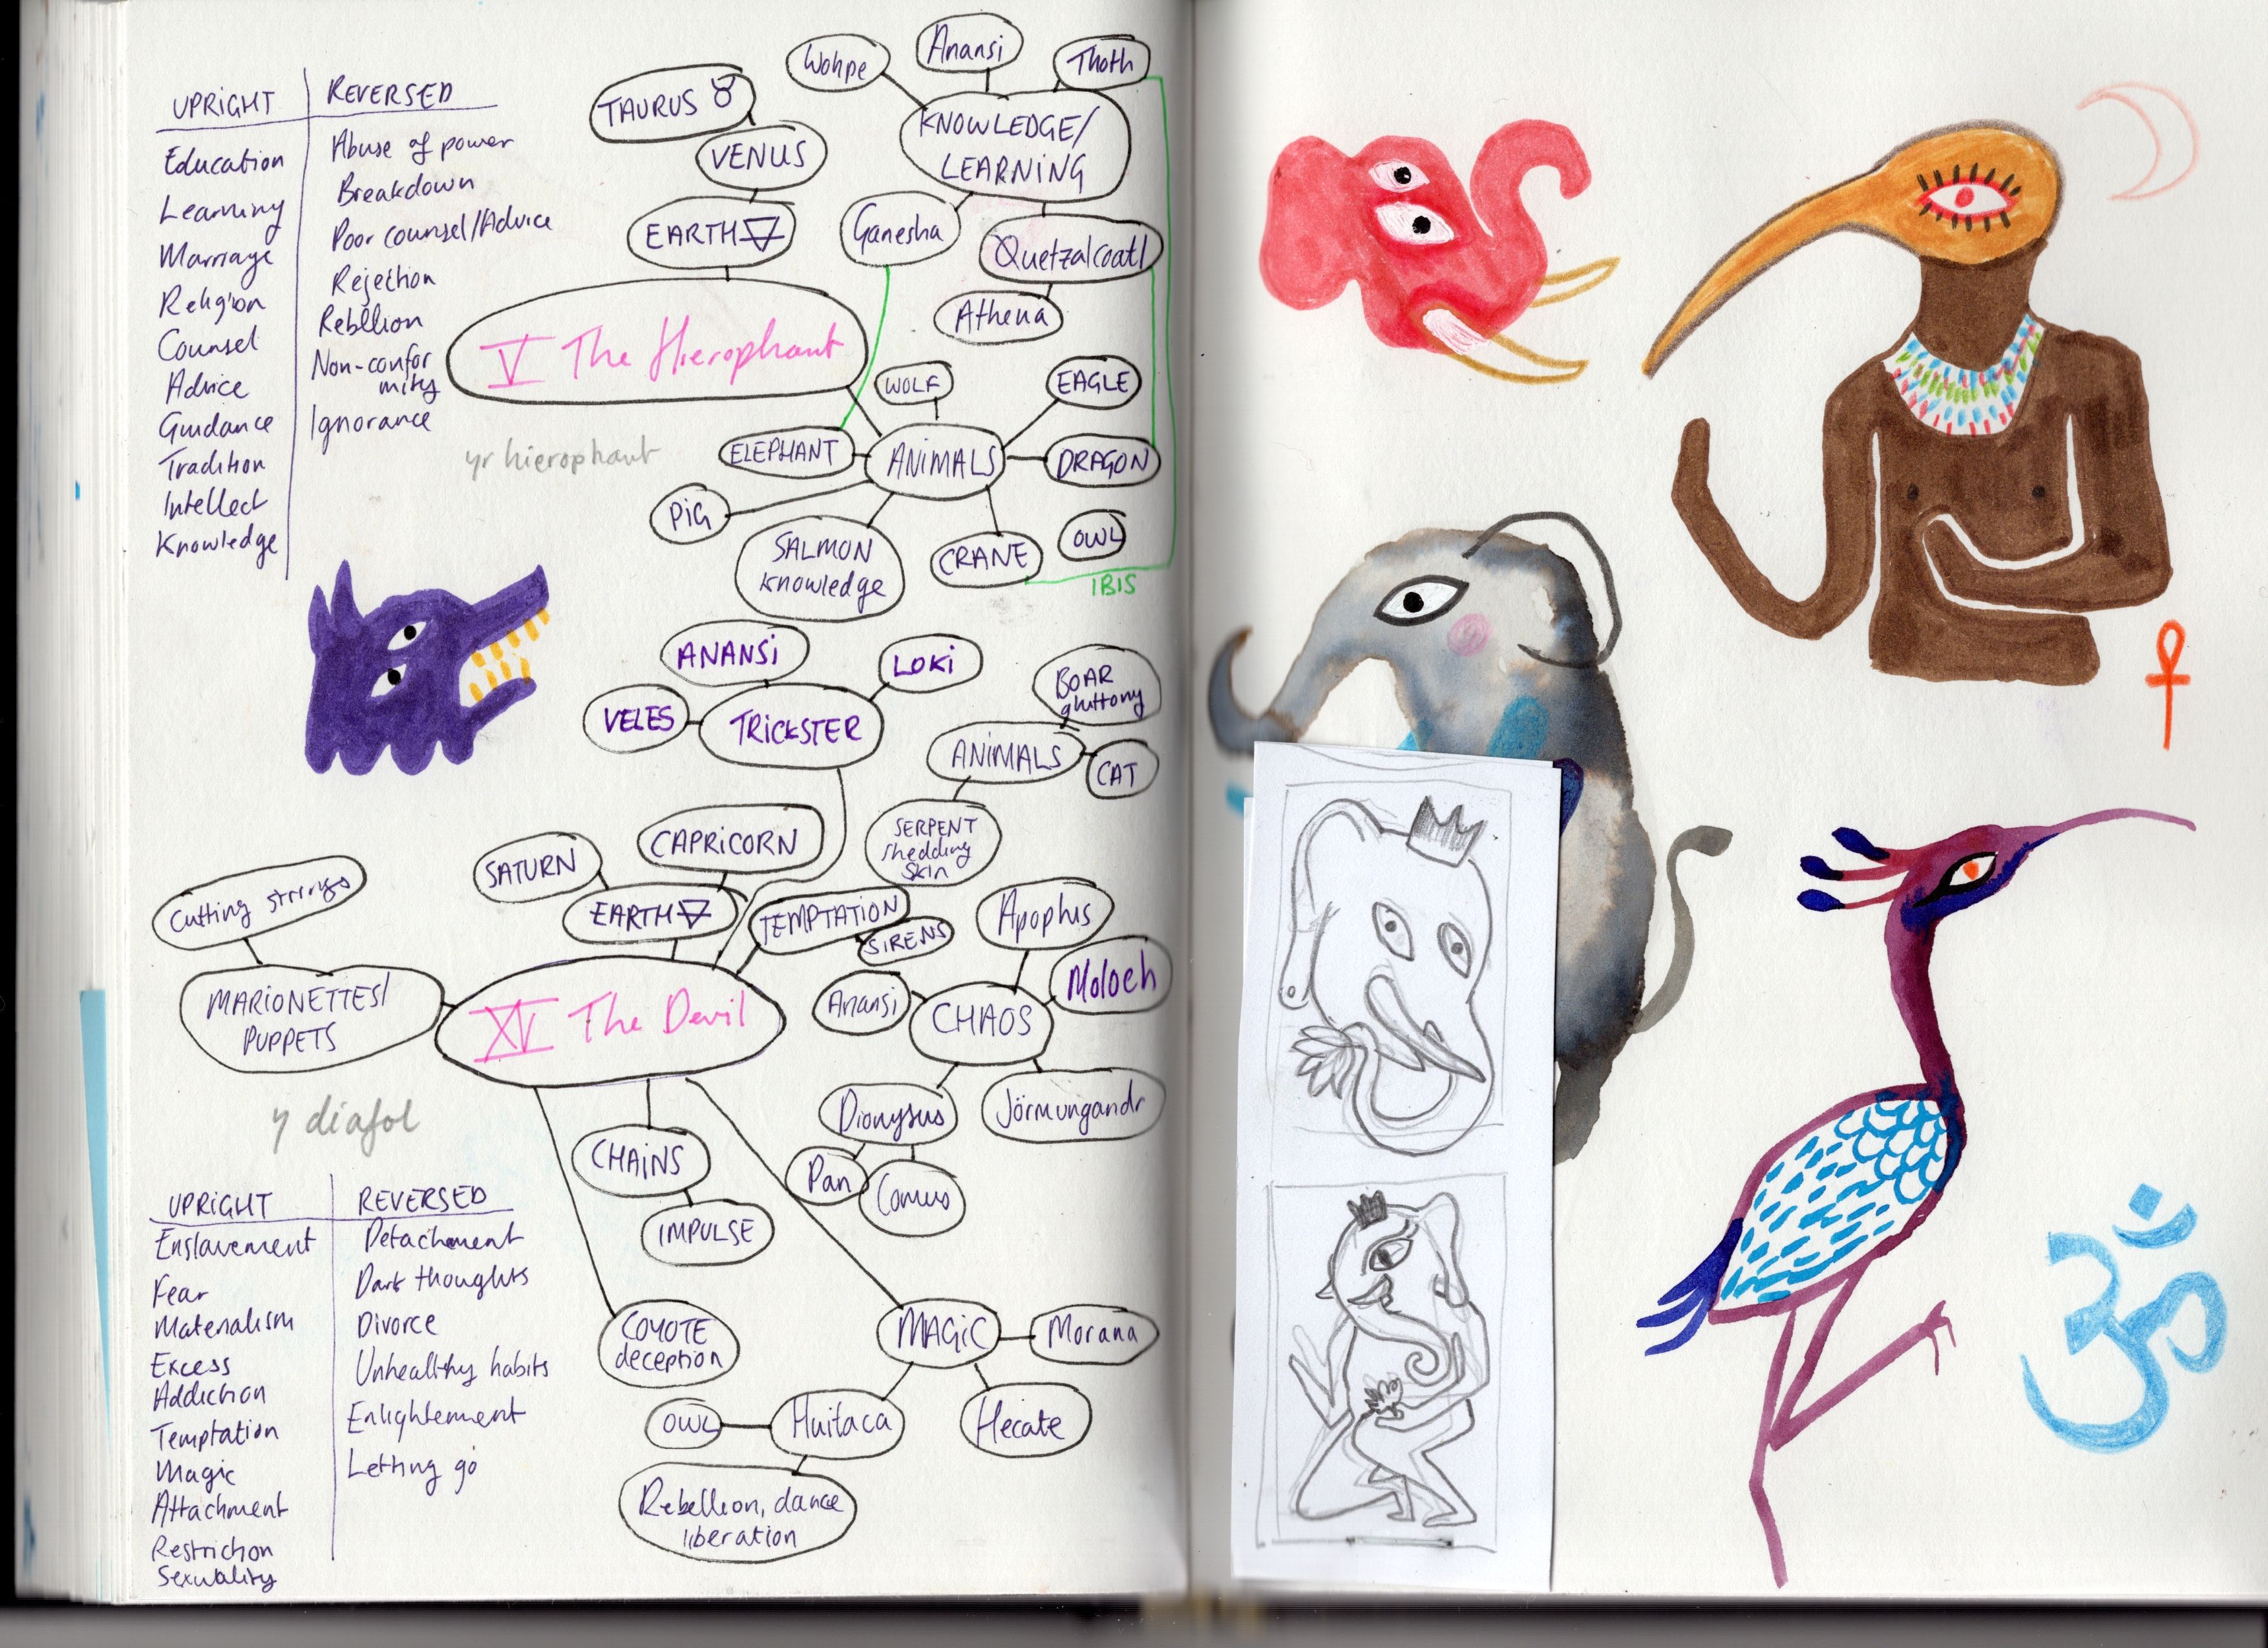 UPRIGHT
Education
Learning
Marriage
Religion
Counsel
Advice
Guidance
Tradition
Intellect
Knowledge
REVERSED
Abuse of power
Breakdown
Poor counsel/Advice
Rejection
Rebllion
Non-confor
mity
Ignorance
TAURUS ♉
VENUS
EARTH
V The Hierophant
yr hierophant
Wohpe
Anansi
Thoth
KNOWLEDGE/
LEARNING
Ganesha
Quetzalcoatl
Athena
WOLF
EAGLE
ELEPHANT
ANIMALS
DRAGON
PIG
SALMON
knowledge
CRANE
OWL
IBIS
ANANSI
LOKI
VELES
TRICKSTER
BOAR
gluttony
ANIMALS
CAT
SERPENT
shedding
skin
SATURN
CAPRICORN
EARTH
TEMPTATION
SIRENS
Cutting strings
MARIONETTES/
PUPPETS
XV The Devil
y diafol
Apophis
Moloch
Anansi
CHAOS
Dionysus
Jörmungandr
Pan
Comus
CHAINS
IMPULSE
COYOTE
deception
MAGIC
Morana
OWL
Huitaca
Hecate
Rebellion, dance
liberation
UPRIGHT
Enslavement
Fear
Materialism
Excess
Addiction
Temptation
Magic
Attachment
Restriction
Sexuality
REVERSED
Detachment
Dark thoughts
Divorce
Unhealthy habits
Enlightenment
Letting go
ॐ